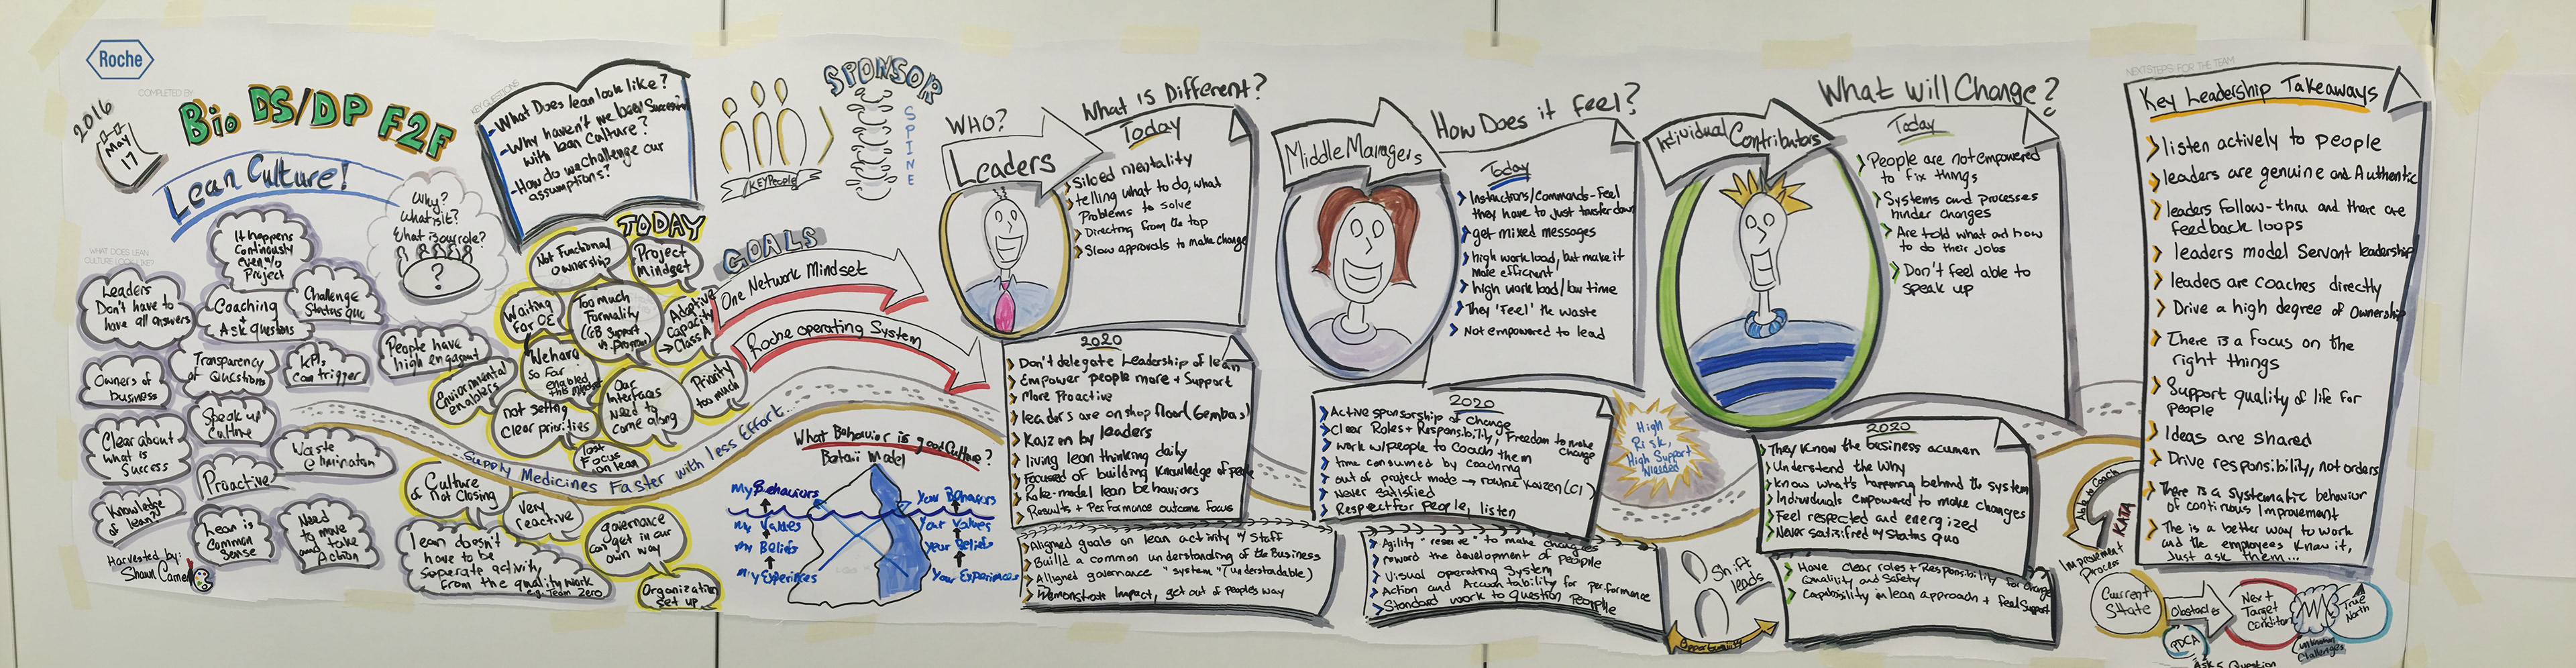 Roche
COMPLETED BY
2016
May
17
Bio DS/DP F2F
Lean Culture!
Why?
What is it?
What is our role?
?
KEY QUESTIONS
-What Does lean look like?
-Why haven't we been Successful
with lean Culture?
-How do we challenge our
assumptions?
WHAT DOES LEAN
CULTURE LOOK LIKE?
It happens
Continously
even w/o
Project
Leaders
Don't have to
have all answers
Coaching
+
Ask questions
Challenge
Status quo
People have
high engagmt
Owners of
business
Transparency
of Questions
KPI's
can trigger
Speak up
Culture
Clear about
what is
Success
Waste
elimination
Proactive
Knowledge
of lean?
Lean is
Common
Sense
Need
to move
and take
Action
Harvested by:
TODAY
Not Functional
Ownership
Project
Mindset
Waiting
for OE
Too much
Formality
(GB Support
vs. program)
Adaptive
Capacity
→ Class A
We have
so far
enabled
this mindset
Environmental
enablers
Our
Interfaces
Need to
come along
Priority
too much
not setting
Clear priorities
Lost
Focus
on lean
Culture
of not Closing
Very
reactive
governance
can get in our
own way
Lean doesn't
have to be
seperate activity
from the quality work
e.g. Team Zero
Organization
set up
KEY People
SPONSOR
SPINE
GOALS
One Network Mindset
Roche operating System
Supply Medicines Faster with less Effort...
What Behavior is good Culture?
Model
My Behaviors
my Values
my Beliefs
my Experiences
Your Behaviors
Your Values
Your Beliefs
Your Experiences
WHO?
Leaders
What is Different?
Today
Siloed mentality
telling what to do, what
Problems to solve
Directing from the top
Slow approvals to make change
2020
Don't delegate Leadership of lean
Empower people more + Support
More Proactive
leaders are on shop floor (Gembas)
Kaizen by leaders
living lean thinking daily
Focused of building Knowledge of people
Role-model lean behaviors
Results + Performance outcome Focus
Aligned goals on lean activity w/ Staff
Build a common understanding of the Business
Aligned governance "system" (understandable)
Demonstrate Impact, get out of peoples way
Middle Managers
How Does it feel?
Today
Instructions/Commands-Feel
they have to just transfer down
get mixed messages
high work load, but make it
more efficient
high work load/low time
They 'Feel' the waste
Not empowered to lead
2020
Active sponsorship of Change
Clear Roles + Responsibility, Freedom to make
change
work w/people to Coach them
time consumed by coaching
out of project mode → routine Kaizen (CI)
Never satisfied
Respect for people, listen
Agility "reserve" to make changes
reward the development of People
Visual operating System
Action and Accountability for performance
Standard work to question People
High
Risk,
High Support
Needed
Shift
leads
Opportunity
Individual Contributors
What will Change?
Today
People are not empowered
to fix things
Systems and processes
hinder changes
Are told what and how
to do their jobs
Don't feel able to
speak up
2020
They Know the business acumen
Understand the Why
Know what's happening behind the system
Individuals empowered to make changes
Feel respected and energized
Never Satisfied w/ Status quo
Have clear roles + Responsibility for change
Quality and Safety
Capability in lean approach + feel Support
NEXT STEPS FOR THE TEAM
Key Leadership Takeaways
listen actively to people
leaders are genuine and Authentic
leaders follow-thru and there are
feedback loops
leaders model Servant leadership
leaders are coaches directly
Drive a high degree of Ownership
There is a focus on the
right things
Support quality of life for
people
Ideas are shared
Drive responsibility, not orders
There is a systematic behavior
of continous Improvement
The is a better way to work
and the employees know it,
Just ask them...
Able to Coach
KATA
Improvement
Process
Current
State
Obstacles
PDCA
Next
Target
Condition
Challenges
True
North
Ask 5 Question